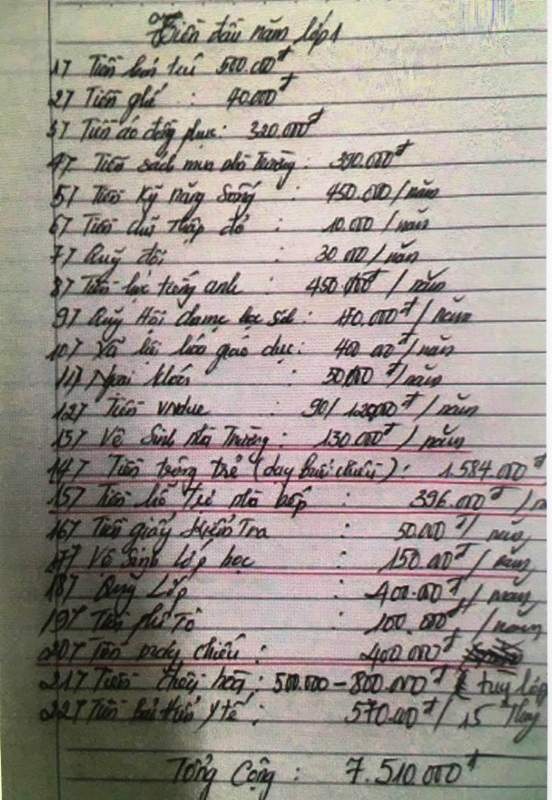 Tiền đầu năm lớp 1
1/ Tiền bán trú 500.000đ
2/ Tiền ghế : 40.000đ
3/ Tiền áo đồng phục: 320.000đ
4/ Tiền sách mua nhà trường: 390.000đ
5/ Tiền Kỹ năng sống : 450.000/năm
6/ Tiền chữ thập đỏ : 10.000/năm
7/ Quỹ đội : 30.000/năm
8/ Tiền học tiếng anh : 450.000đ/năm
9/ Quỹ Hội cha mẹ học sinh: 170.000đ/năm
10/ Xã hội hóa giáo dục: 400.000đ/năm
11/ Ngoại khóa : 50.000đ/năm
12/ Tiền vnedue : 90/120.000đ/năm
13/ Vệ Sinh nhà trường: 130.000đ/năm
14/ Tiền trông trẻ (dạy buổi chiều): 1.584.000đ
15/ Tiền hỗ trợ nhà bếp : 396.000đ/n
16/ Tiền giấy Kiểm Tra : 50.000đ/năm
17/ Vệ Sinh Lớp học : 150.000đ/năm
18/ Quỹ Lớp : 400.000đ/năm
19/ Tiền phô tô : 100.000đ/năm
20/ Tiền máy chiếu : 400.000đ
21/ Tiền : 500.000-800.000đ (tuỳ lớp
22/ Tiền bảo hiểm y tế : 570.000đ/15 tháng
Tổng Cộng : 7.510.000đ